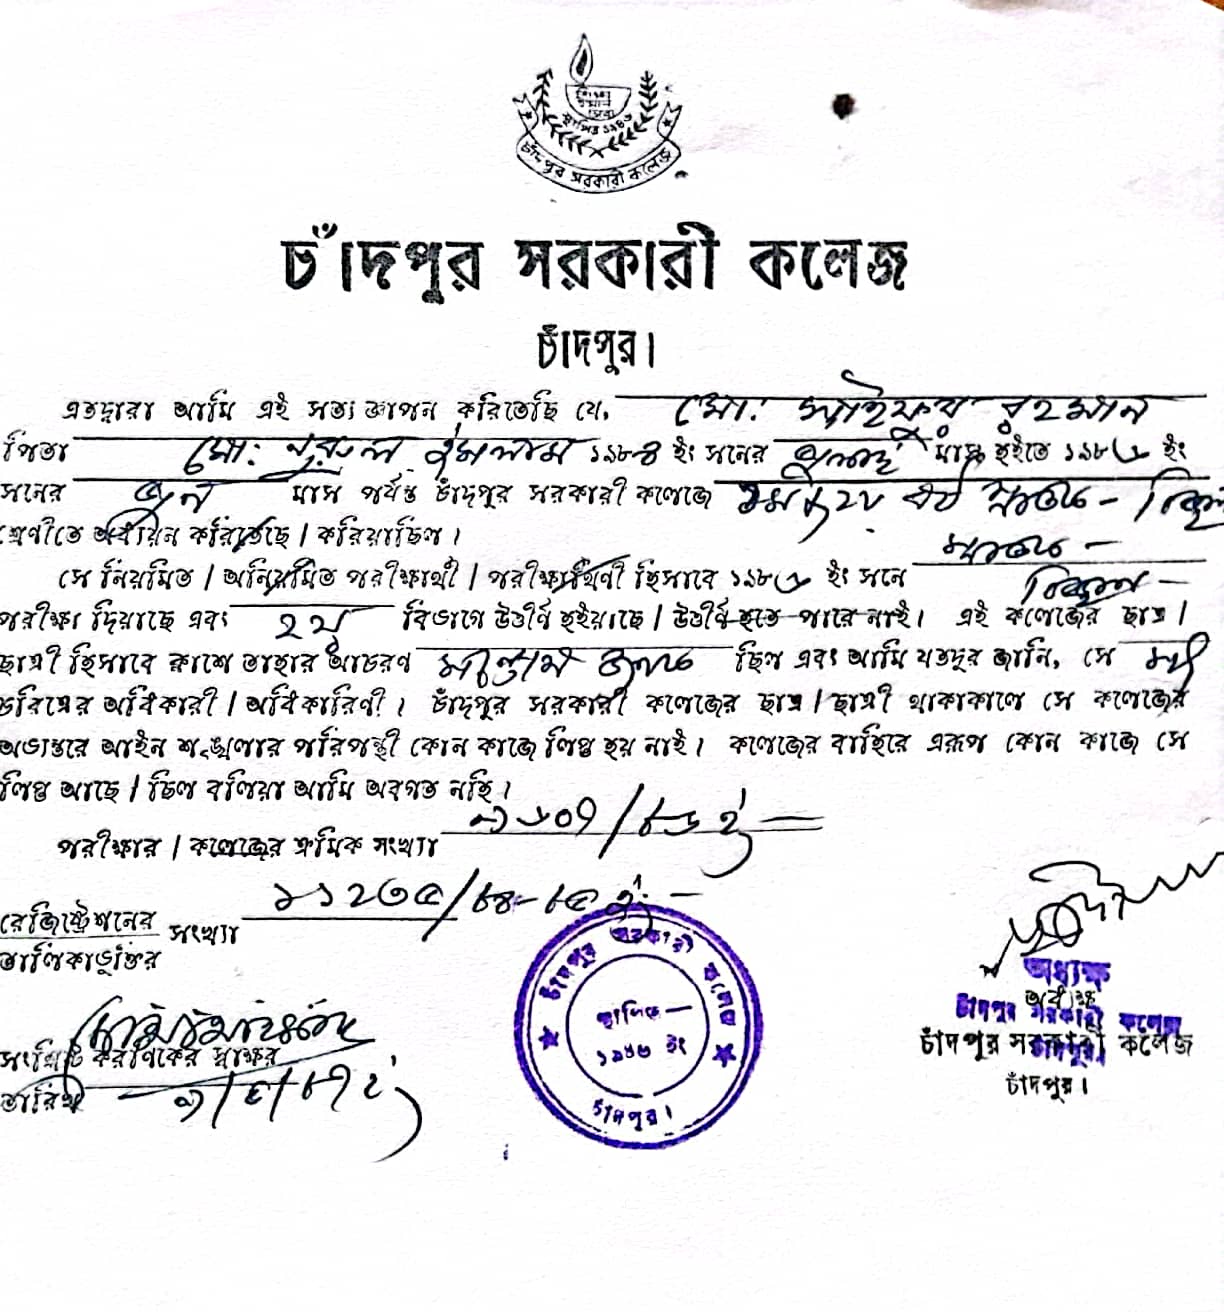 স্থাপিত ১৯৪৬
চাঁদপুর সরকারী কলেজ
চাঁদপুর সরকারী কলেজ
চাঁদপুর।
এতদ্বারা আমি এই সত্য জ্ঞাপন করিতেছি যে, মো: সাইফুর রহমান
পিতা মো: নুরুল ইসলাম ১৯৮৪ ইং সনের জুলাই মাস হইতে ১৯৮৬ ইং
সনের জুন মাস পর্যন্ত চাঁদপুর সরকারী কলেজে বর্ষ স্নাতক -
শ্রেণীতে অধ্যয়ন করিতেছে / করিয়াছিল।
সে নিয়মিত / অনিয়মিত পরীক্ষার্থী / পরীক্ষার্থিণী হিসাবে ১৯৮৬ ইং সনে স্নাতক -
পরীক্ষা দিয়াছে এবং ২য় বিভাগে উত্তীর্ণ হইয়াছে / উত্তীর্ণ হতে পারে নাই। এই কলেজের ছাত্র /
ছাত্রী হিসাবে ক্লাশে তাহার আচরণ ছিল এবং আমি যতদূর জানি, সে সৎ
চরিত্রের অধিকারী / অধিকারিণী। চাঁদপুর সরকারী কলেজের ছাত্র / ছাত্রী থাকাকালে সে কলেজের
অভ্যন্তরে আইন শৃঙ্খলার পরিপন্থী কোন কাজে লিপ্ত হয় নাই। কলেজের বাহিরে এরূপ কোন কাজে সে
লিপ্ত আছে / ছিল বলিয়া আমি অবগত নহি।
পরীক্ষার / কলেজের ক্রমিক সংখ্যা
রেজিষ্ট্রেশনের সংখ্যা ১১২৩৫/৮৪-৮৫ ইং -
তালিকাভুক্তির
চাঁদপুর সরকারী কলেজ
স্থাপিত -
১৯৪৬ ইং
চাঁদপুর।
অধ্যক্ষ
চাঁদপুর সরকারী কলেজ
চাঁদপুর।
অধ্যক্ষ
চাঁদপুর সরকারী কলেজ
চাঁদপুর।
সংশ্লিষ্ট করণিকের স্বাক্ষর
তারিখ